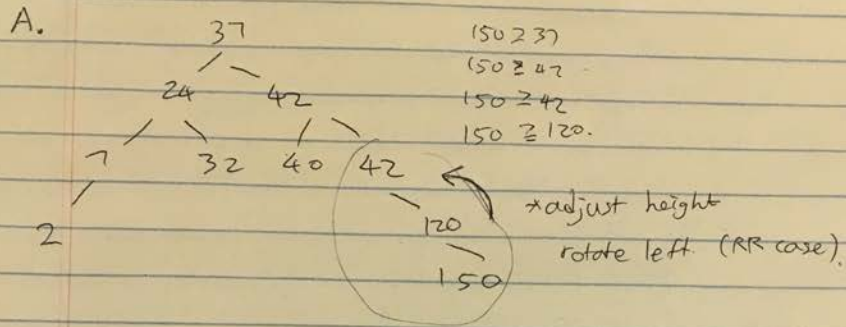 A.
37
24 42
7 32 40 42
2 120
150
150 ≥ 37
150 ≥ 42
150 ≥ 42
150 ≥ 120.
*adjust height
rotate left (RR case).